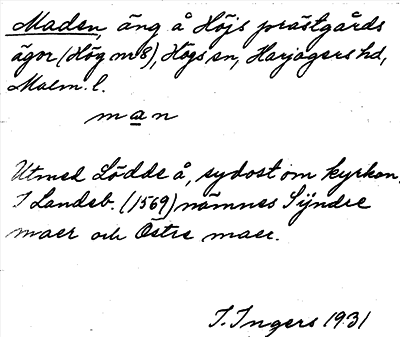 Maden, äng å Högs prästgårds
ägor (Hög nr 8), Högs sn, Harjagers hd,
Malm. l.
man
Utmed Lödde å, sydost om kyrkan.
I Landeb. (1569) nämnes Syndre
maer och Östre maer.
I. Ingers 1931